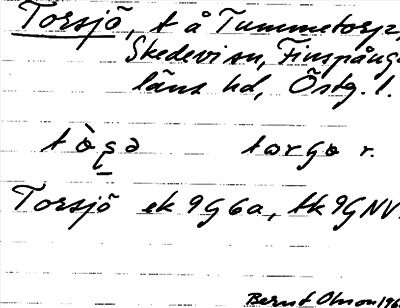 Torsjö, t å Tummetorp,
Skedevi sn, Finspånga
läns hd, Östg. l.
tòrşə torgə r.
Torsjö ek 9G6a, tk 9GNV.
Bernt Olsson 196